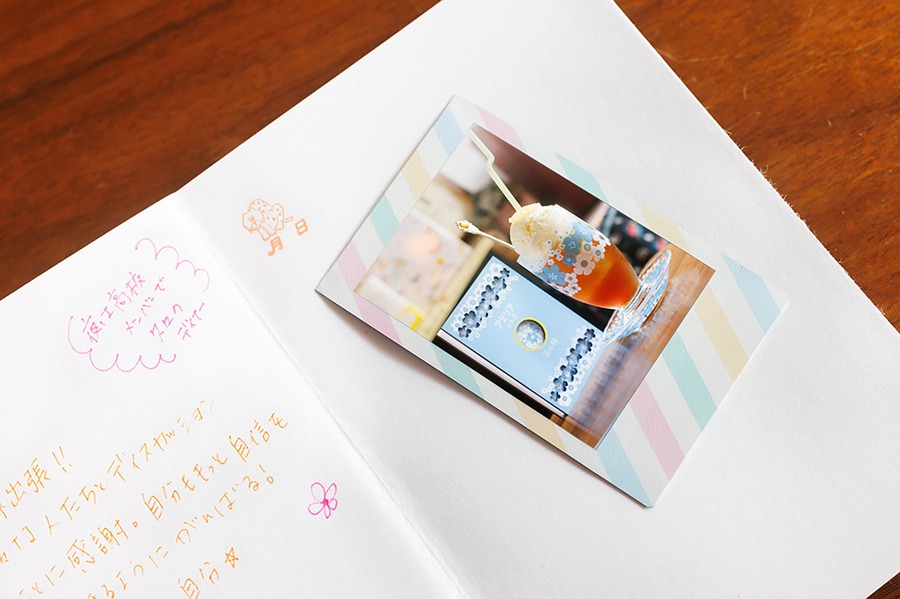 月 日
メンバーで
ディナー
出張!!
人たちとディスカッション
ことに感謝。自分ももっと自信を
るようにがんばる!
自分☆
アデリア
レトロ